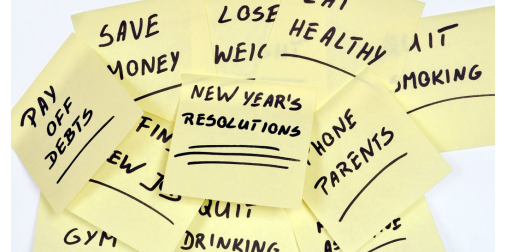 SAVE
MONEY
LOSE
HEALTHY
SMOKING
PAY
OFF
DEBTS
NEW YEAR'S
RESOLUTIONS
PARENTS
QUIT
DRINKING
GYM